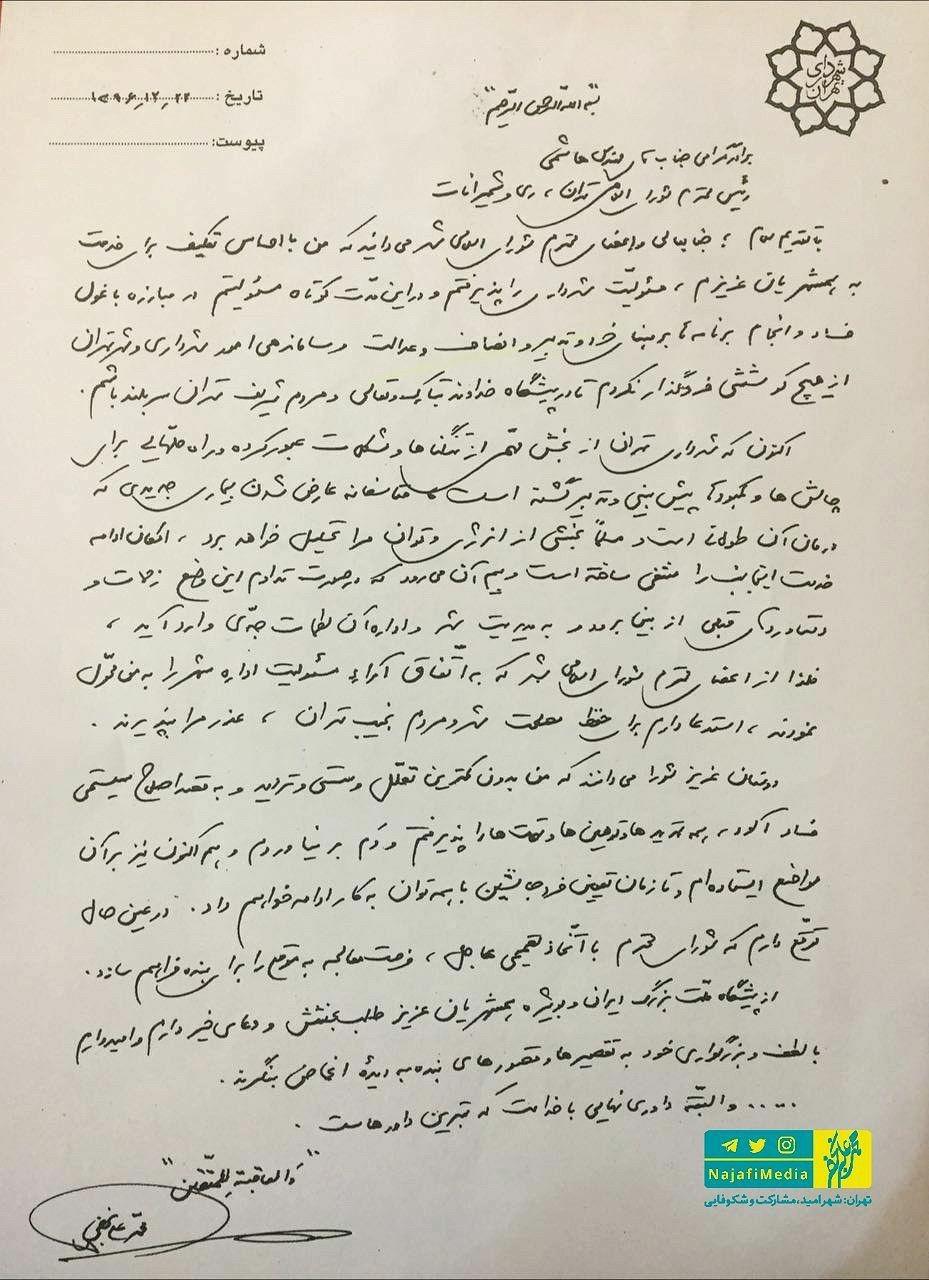 شماره :
تاریخ : ۱۳۹۶٫۱۲٫۲۲
پیوست:
شهرداری تهران
"بسم الله الرحمن الرحیم"
برادر گرامی جناب آقای مهندس هاشمی
رئیس محترم شورای اسلامی تهران، ری و شمیرانات
با تقدیم سلام ؛ جنابعالی و اعضای محترم شورای اسلامی شهر می‌دانید که من با احساس تکلیف برای خدمت
به همشهریان عزیزم ، مسئولیّت شهرداری را پذیرفتم و در این مدّت کوتاه مسئولیتم در مبارزه با غول
فساد و انجام برنامه‌ها بر مبنای خرد و تدبیر و انصاف و عدالت و ساماندهی امور شهرداری و شهر تهران
از هیچ کوششی فروگذار نکردم تا در پیشگاه خداوند تبارک و تعالی و مردم شریف تهران سربلند باشم .
اکنون که شهرداری تهران از بخش مهّمی از تنگناها و مشکلات عبور کرده و راه حلهایی برای
چالش ها و کمبودها پیش بینی و تدبیر گشته است ، متأسفانه عارض شدن بیماری جدیدی که
درمان آن طولانی است و مسلّماً بخشی از انرژی و توان مرا تحلیل خواهد برد ، امکان ادامه
خدمت اینجانب را منتفی ساخته است و بیم آن می‌رود که در صورت تداوم این وضع زحمات و
دستاوردهای قبلی از بین برود و به مدیریت شهر و اداره آن لطمات جدّی وارد آید ،
فلذا از اعضای محترم شورای اسلامی شهر که به اتّفاق آراء مسئولیت اداره شهر را به من محوّل
نمودند ، استدعا دارم برای حفظ مصلحت شهر و مردم نجیب تهران ، عذر مرا بپذیرند .
دوستان عزیز شورا می‌دانند که من بدون کمترین تعلّل و سستی و تردید و به قصد اصلاح سیستمی
فساد آلود ، همه تهدیدها و توهین ها و تهمت ها را پذیرفتم و دَم بر نیاوردم و هم اکنون نیز بر آن
مواضع ایستاده‌ام و تا زمان تعیین فرد جانشین با همه توان به کار ادامه خواهم داد . در عین حال
توقّع دارم که شورای محترم با اتّخاذ تصمیمی عاجل ، فرصت معالجه به موقع را برای بنده فراهم سازد .
از پیشگاه ملّت بزرگ ایران و بویژه همشهریان عزیز طلب بخشش و دعای خیر دارم و امیدوارم
با لطف و بزرگواری خود به تقصیرها و قصورهای بنده به دیدهٔ اغماض بنگرند .
..... و البتّه داوری نهایی با خداست که بهترین داورهاست .
"والعاقبة للمتّقین"
محمّد علی نجفی
NajafiMedia
تهران: شهر امید، مشارکت و شکوفایی